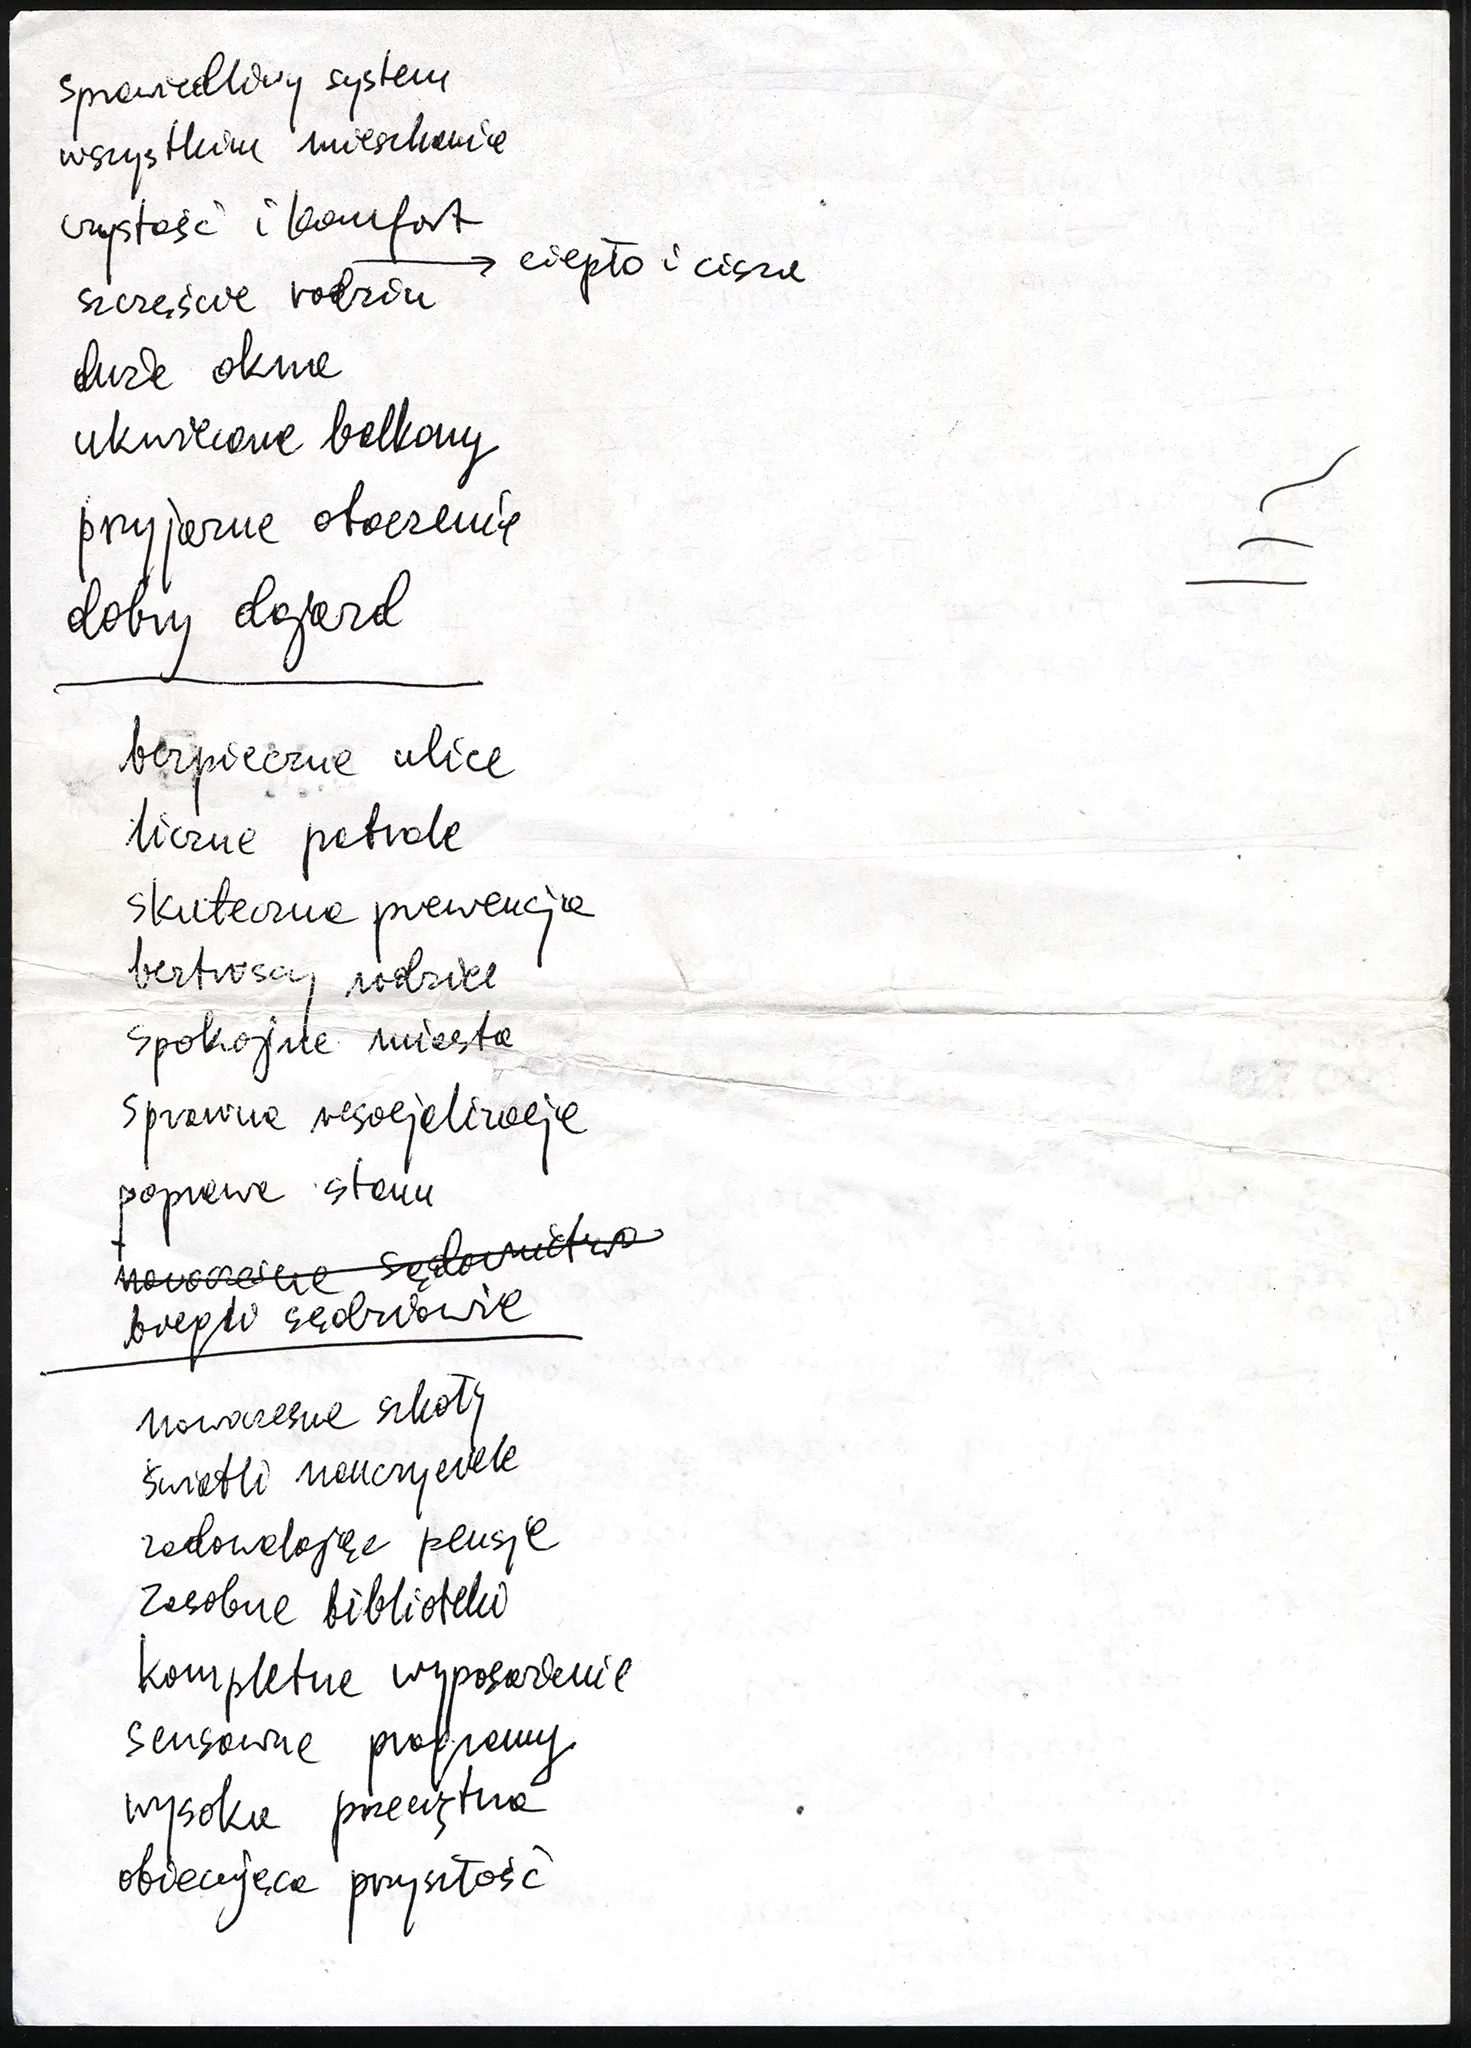 sprawiedliwy system
wszystkim mieszkanie
czystość i komfort
→ ciepło i cisza
szczęście rodzin
duże okna
ukwiecone balkony
przyjazne otoczenie
dobry dojazd
bezpieczne ulice
liczne patrole
skuteczna prewencja
beztroscy rodzice
spokojne miasta
sprawna resocjalizacja
poprawa stanu
sądownictwo
biegli sędziowie
nowoczesne szkoły
światli nauczyciele
zadowalające pensje
zasobne biblioteki
kompletne wyposażenie
sensowne programy
wysoka przeciętna
obiecująca przyszłość